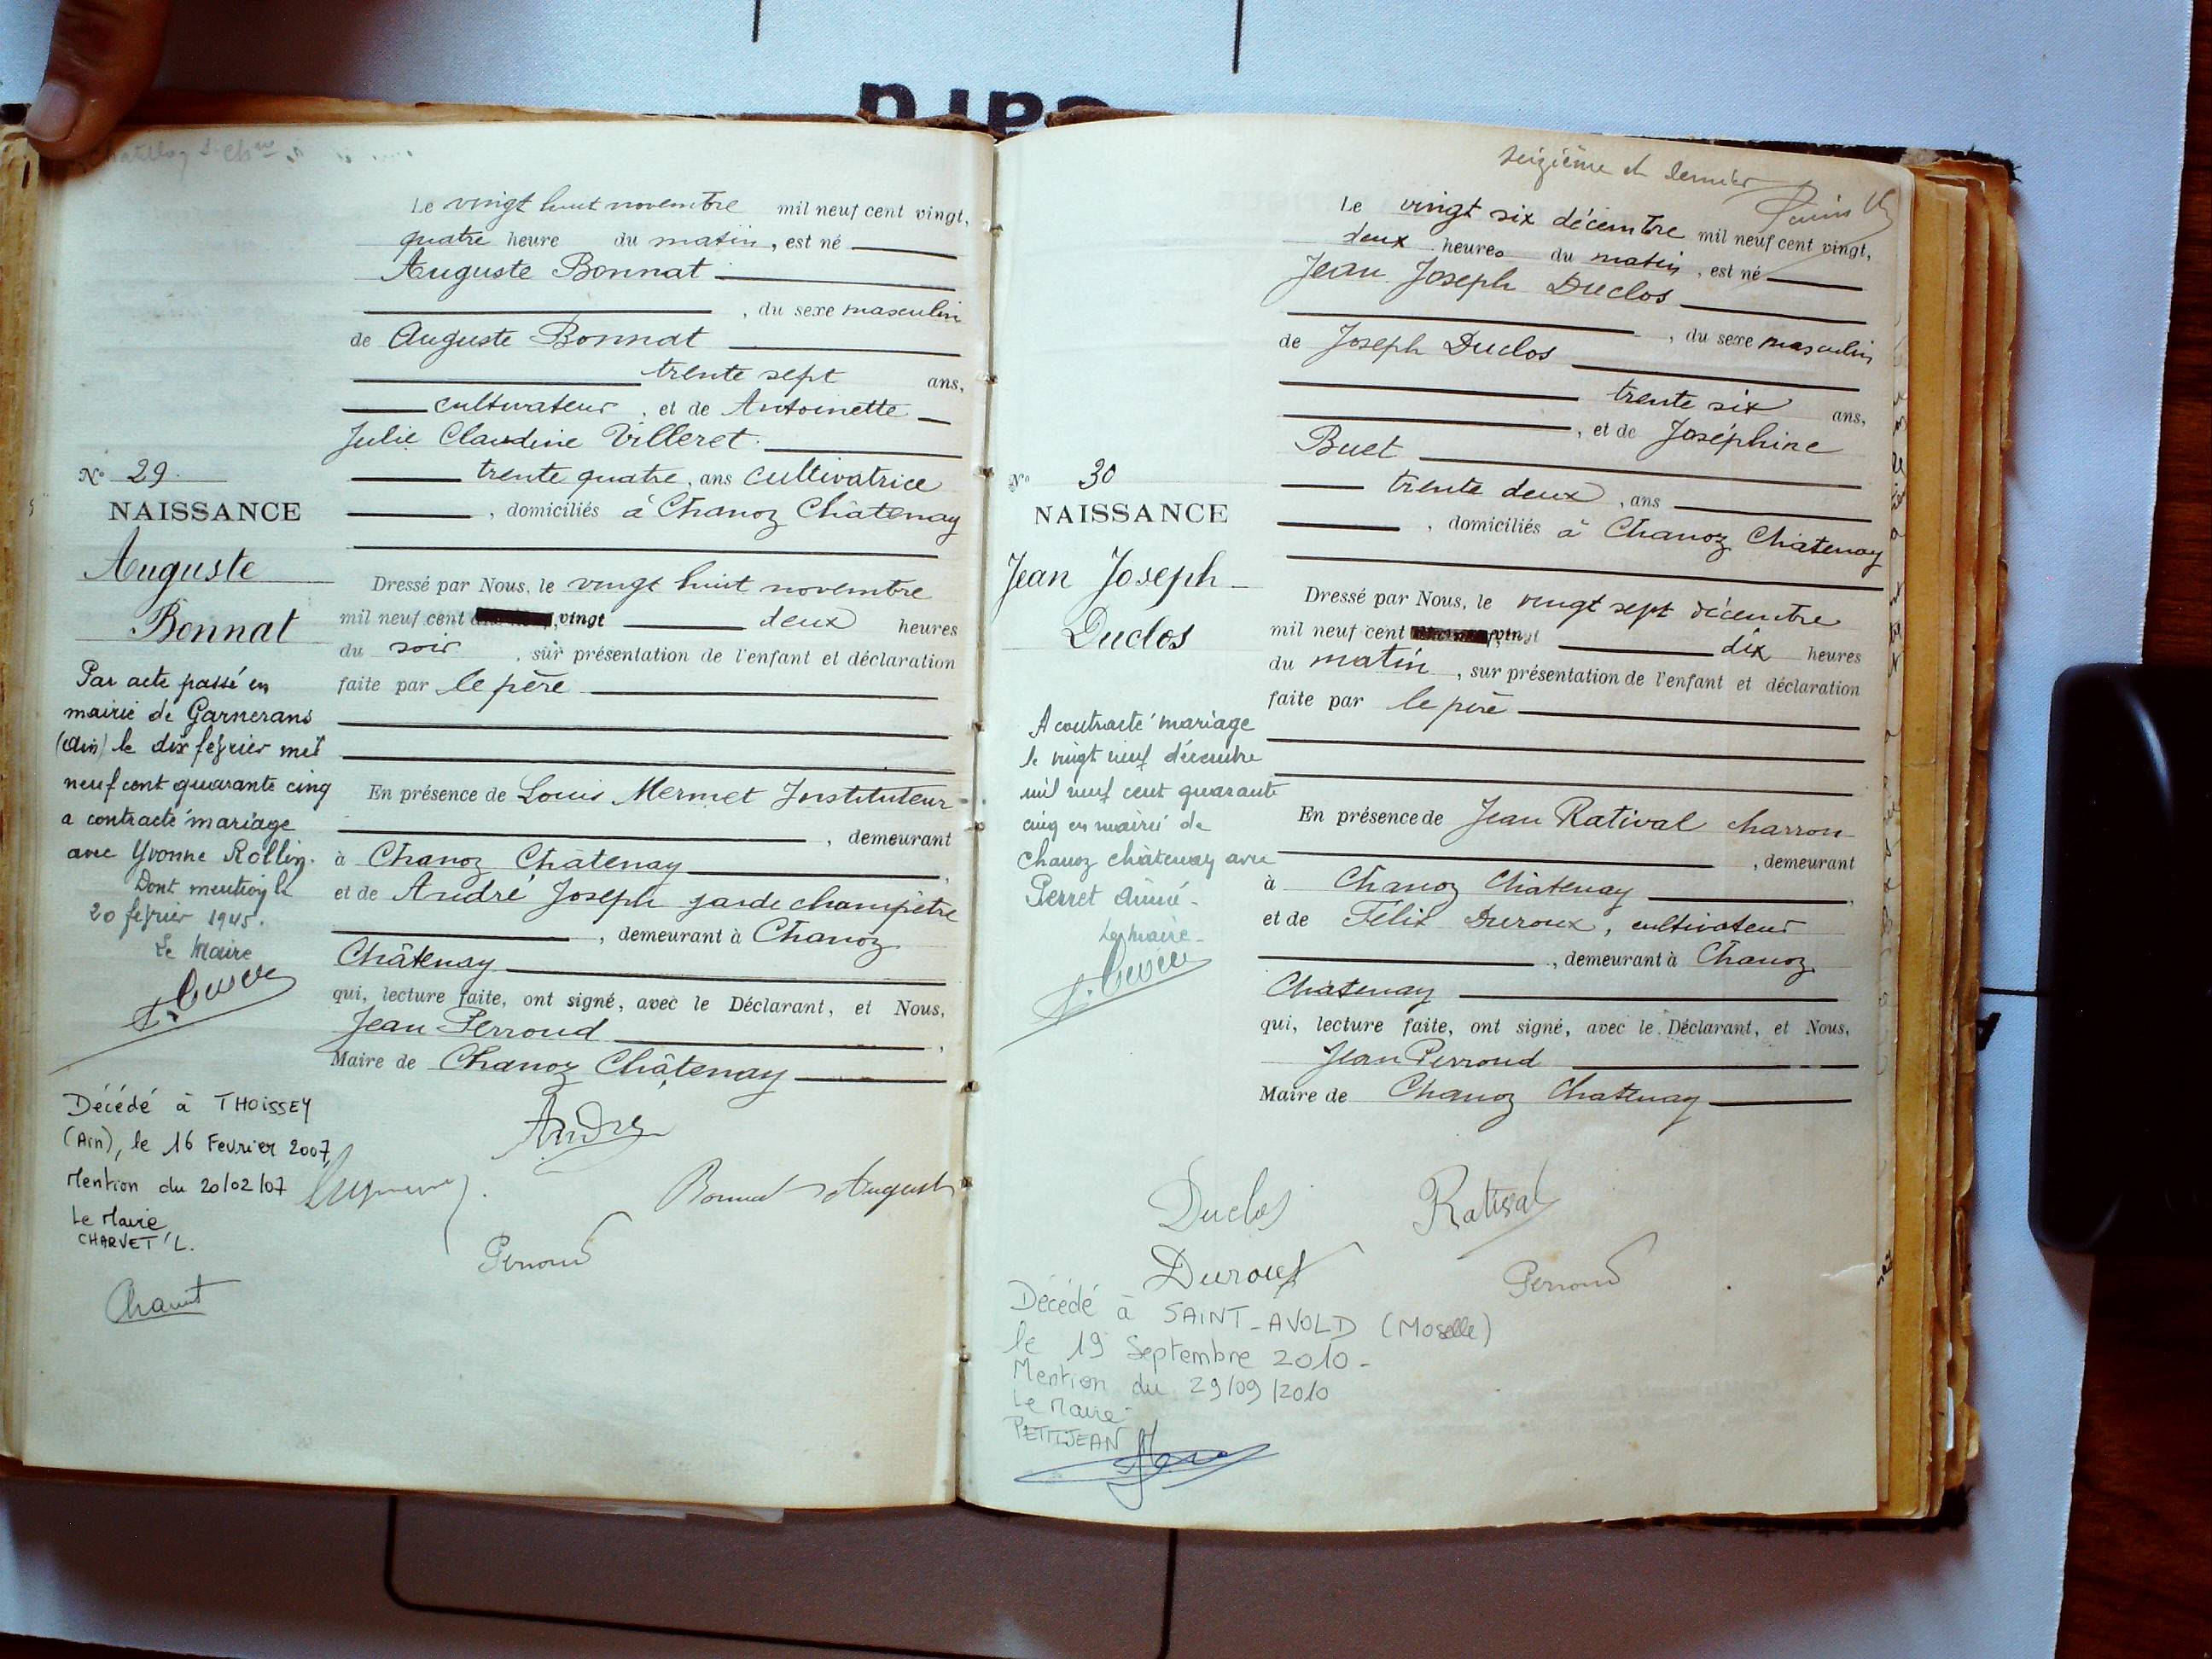 Le vingt huit novembre mil neuf cent vingt,
quatre heure du matin, est né
Auguste Bonnat
, du sexe masculin
de Auguste Bonnat
trente sept ans,
cultivateur, et de Antoinette
Julie Claudine Villeret
trente quatre, ans cultivatrice
, domiciliés à Chanoz Châtenay
Dressé par Nous, le vingt huit novembre
mil neuf cent vingt deux heures
du soir, sur présentation de l'enfant et déclaration
faite par le père
En présence de Louis Mermet Instituteur
, demeurant
à Chanoz Châtenay,
et de André Joseph garde champêtre
, demeurant à Chanoz
Châtenay
qui, lecture faite, ont signé, avec le Déclarant, et Nous,
Jean Perroud,
Maire de Chanoz Châtenay
André
Bonnat Auguste
Perroud
N° 29.
NAISSANCE
Auguste
Bonnat
Par acte passé en
mairie de Garnerans
(Ain) le dix février mil
neuf cent quarante cinq
a contracté mariage
avec Yvonne Rollin.
Dont mention le
20 février 1945.
Le Maire
Décédé à THOISSEY
(Ain), le 16 Fevrier 2007,
Mention du 20/02/07
Le Maire
CHARVET L.
Charvet
seizième et dernier
Le vingt six décembre mil neuf cent vingt,
deux heures du matin, est né
Jean Joseph Duclos
, du sexe masculin
de Joseph Duclos
trente six ans,
, et de Joséphine
Buet
trente deux, ans
, domiciliés à Chanoz Châtenay
Dressé par Nous, le vingt sept décembre
mil neuf cent vingt dix heures
du matin, sur présentation de l'enfant et déclaration
faite par le père
En présence de Jean Ratival charron
, demeurant
à Chanoz Châtenay,
et de Félix Duroux, cultivateur
, demeurant à Chanoz
Chatenay
qui, lecture faite, ont signé, avec le Déclarant, et Nous,
Jean Perroud
Maire de Chanoz Chatenay
Duclos Ratival
Duroux Perroud
N° 30
NAISSANCE
Jean Joseph
Duclos
A contracté mariage
le vingt neuf décembre
mil neuf cent quarante
cinq en mairie de
Chanoz châtenay avec
Perret Aimé
Le maire
Décédé à SAINT-AVOLD (Moselle)
le 19 Septembre 2010-
Mention du 29/09/2010
Le Maire
PETITJEAN